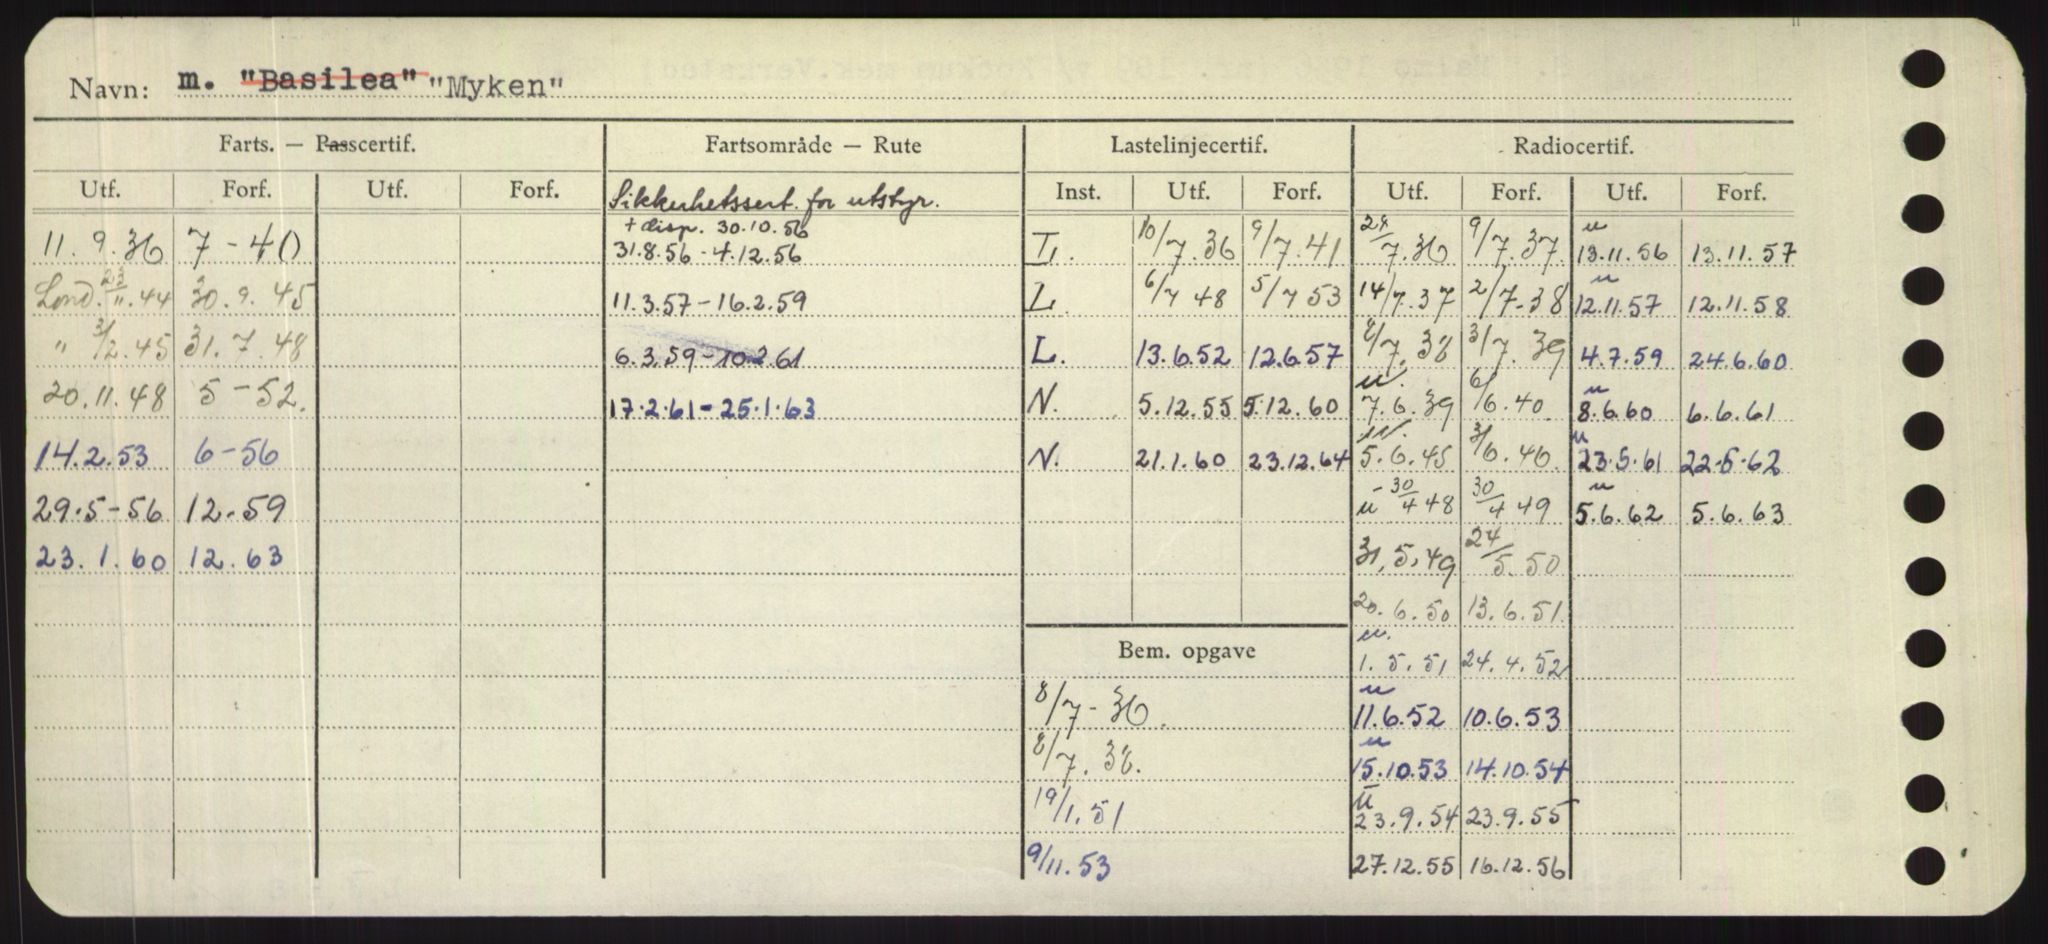 Navn: m. "Basilea" "Myken"
Farts. — Passcertif. Fartsområde — Rute Lastelinjecertif. Radiocertif.
Utf. Forf. Utf. Forf. Sikkerhetssert. for utstyr. Inst. Utf. Forf. Utf. Forf. Utf. Forf.
+ disp. 30.10.56
11.9.36 7-40 31.8.56-4.12.56 10/7.36 9/7.41 24/7.36 9/7.37. u 13.11.56 13.11.57
Lond. 23/11.44 30.9.45 11.3.57-16.2.59 L. 6/7 48 5/7 53 14/7.37 2/7-38 u 12.11.57 12.11.58
" 3/2.45 31.7.48 6.3.59-10.2.61 L. 13.6.52 12.6.57 8/7.38 3/7.39 4.7.59 24.6.60
20.11.48 5-52. 17.2.61-25.1.63 N. 5.12.55 5.12.60 u. 7.6.39 6/6.40. u 8.6.60 6.6.61
14.2.53 6-56 N. 21.1.60 23.12.64 5.6.45 3/6.46. u 23.5.61 22.5.62
29.5-56 12-59 u -30/4 48 30/4 49 u 5.6.62 5.6.63
23.1.60 12.63 31.5.49 24/5.50
20.6.50 13.6.51.
Bem. opgave u. 1.5.51 24.4.52
8/7-36. u 11.6.52 10.6.53
8/7.38. u 15.10.53 14.10.54
19/1.51 u 23.9.54 23.9.55
9/11.53 27.12.55 16.12.56